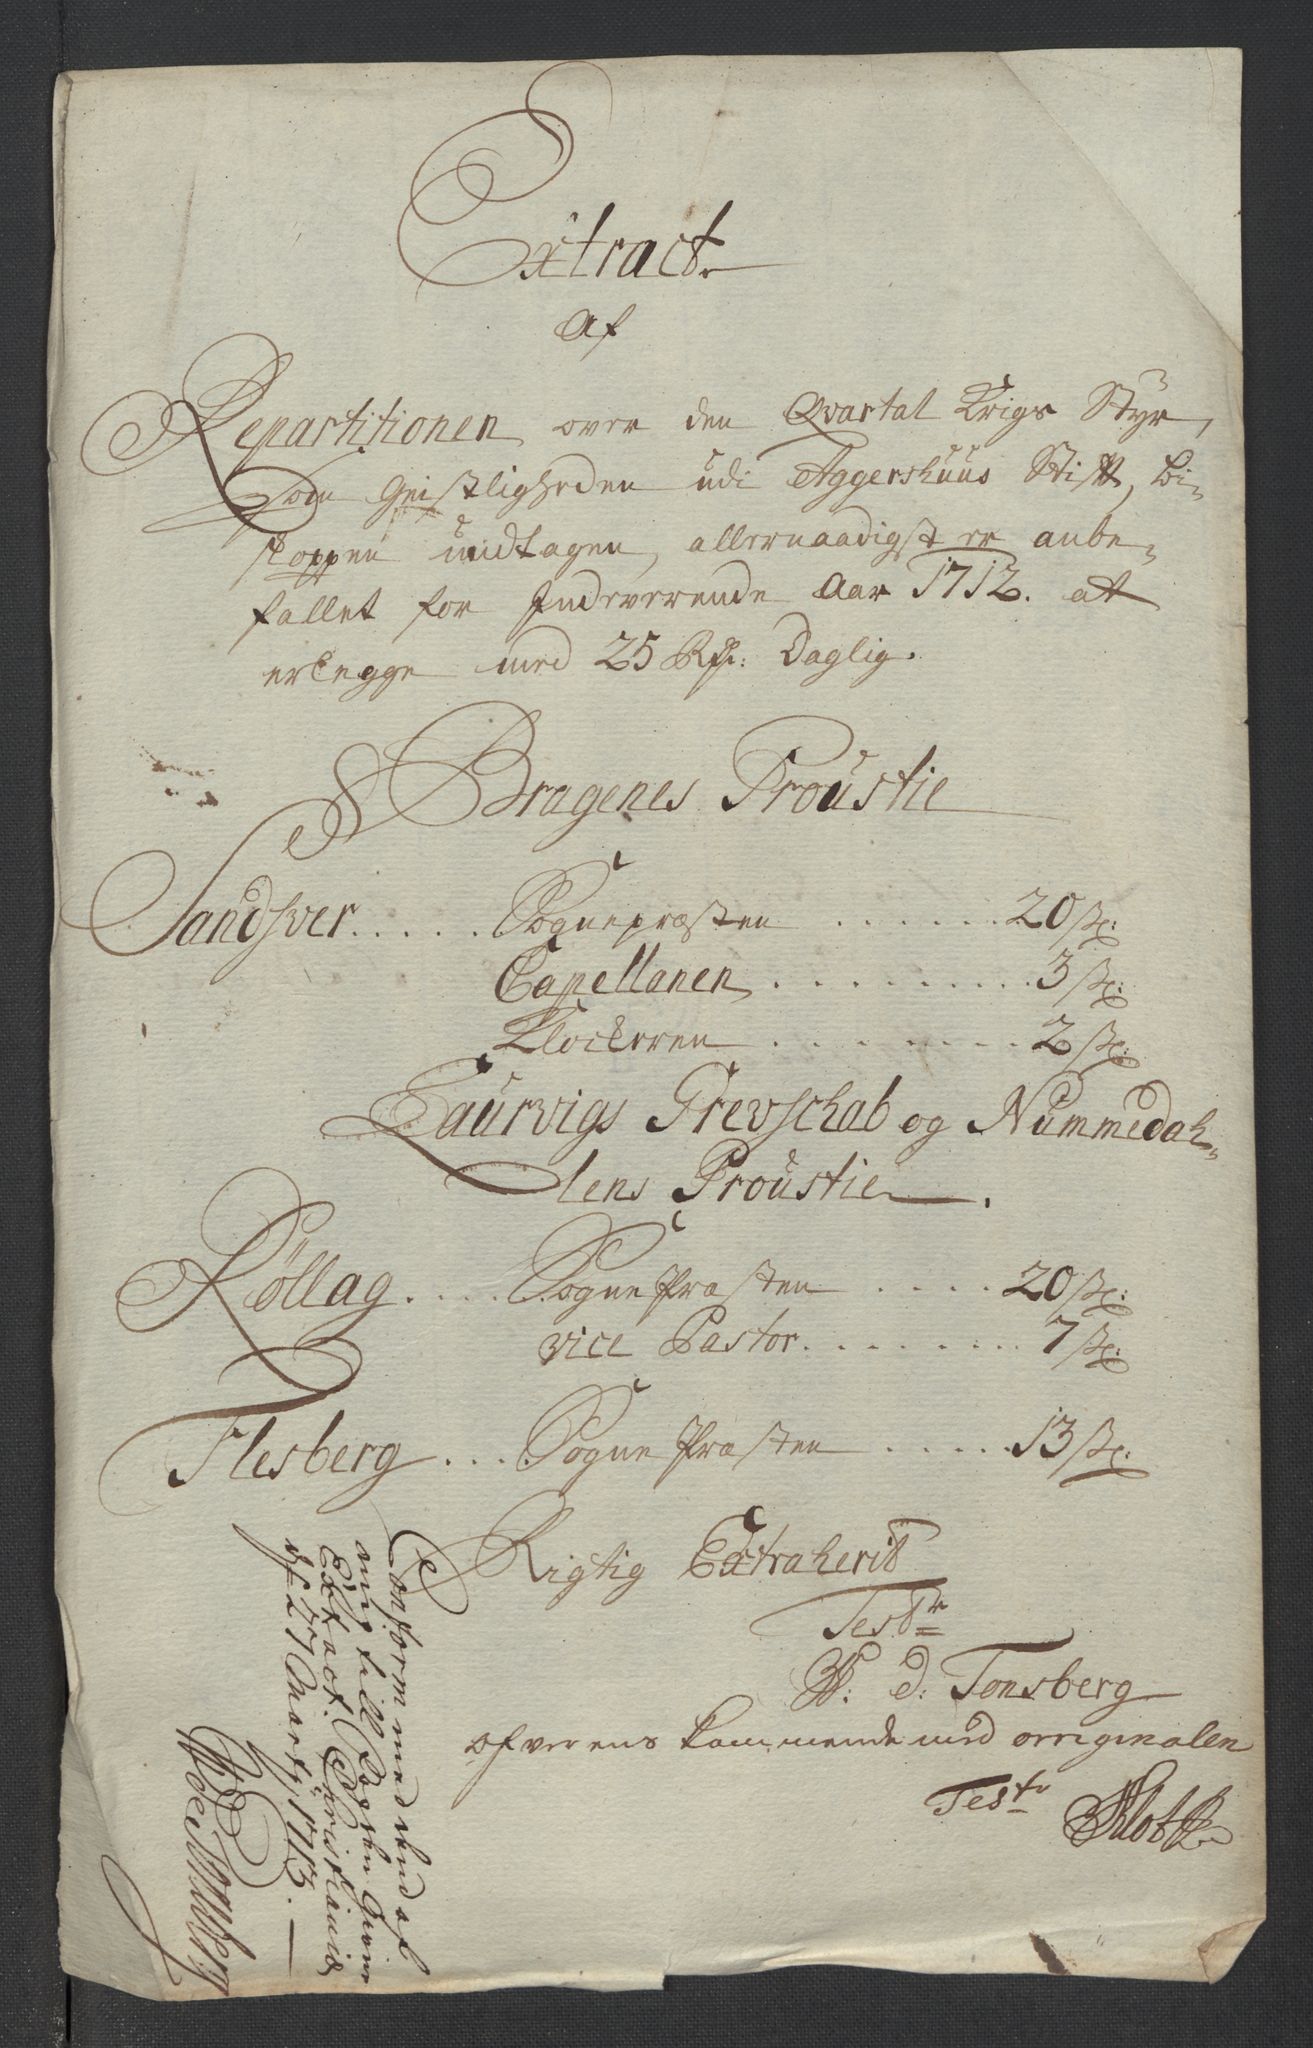 Extract
Af
Repartitionen over den Qvartal Krigs Styr,
som Geistligheden udi Aggershuus Stift, Bi-
skoppen undtagen, allernaadigst er anbe-
fallet for Indeverende Aar 1712. at
erlegge med 25 Rdr: Daglig.
Bragenes Proustie
Sandsver..... Sognepræsten ....... 20 s:
Capellanen .......... 3 s:
Klockeren ........ 2 s:
Laurvigs Grevschab og Nummedah-
lens Proustie.
Röllag.... Sogne Præsten ..... 20 s:
vice Pastor......... 7 s:
Flesberg.... Sogne Præsten ..... 13 s:
Rigtig Extraherit
Test
W: d: Tonsberg
ofverens kommende med originalen
Test
Conform med den af
mig till Fogden
Extract. Christiania
d 27 Marty 1713.